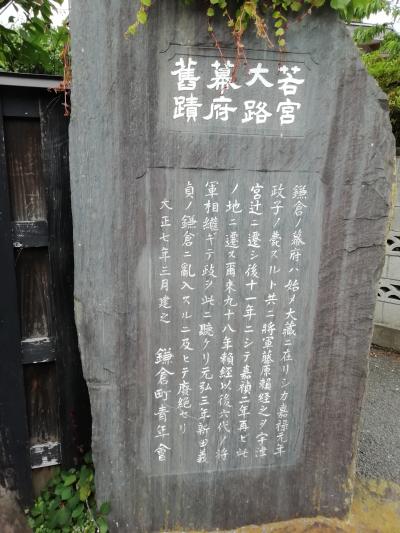 若宮
大路
幕府
舊蹟
鎌倉ノ幕府ハ始メ大藏ニ在リシカ嘉禄元年
政子ノ薨スルト共ニ將軍藤原頼経之ヲ宇津
宮辻ニ遷シ後十一年ニシテ嘉禎二年再ヒ此
ノ地ニ遷ス爾来九十八年頼経以後六代ノ将
軍相継ギテ政ヲ此ニ聴ケリ元弘三年新田義
貞ノ鎌倉ニ亂入スルニ及ヒテ廢絶セリ
大正七年三月建之 鎌倉町青年會